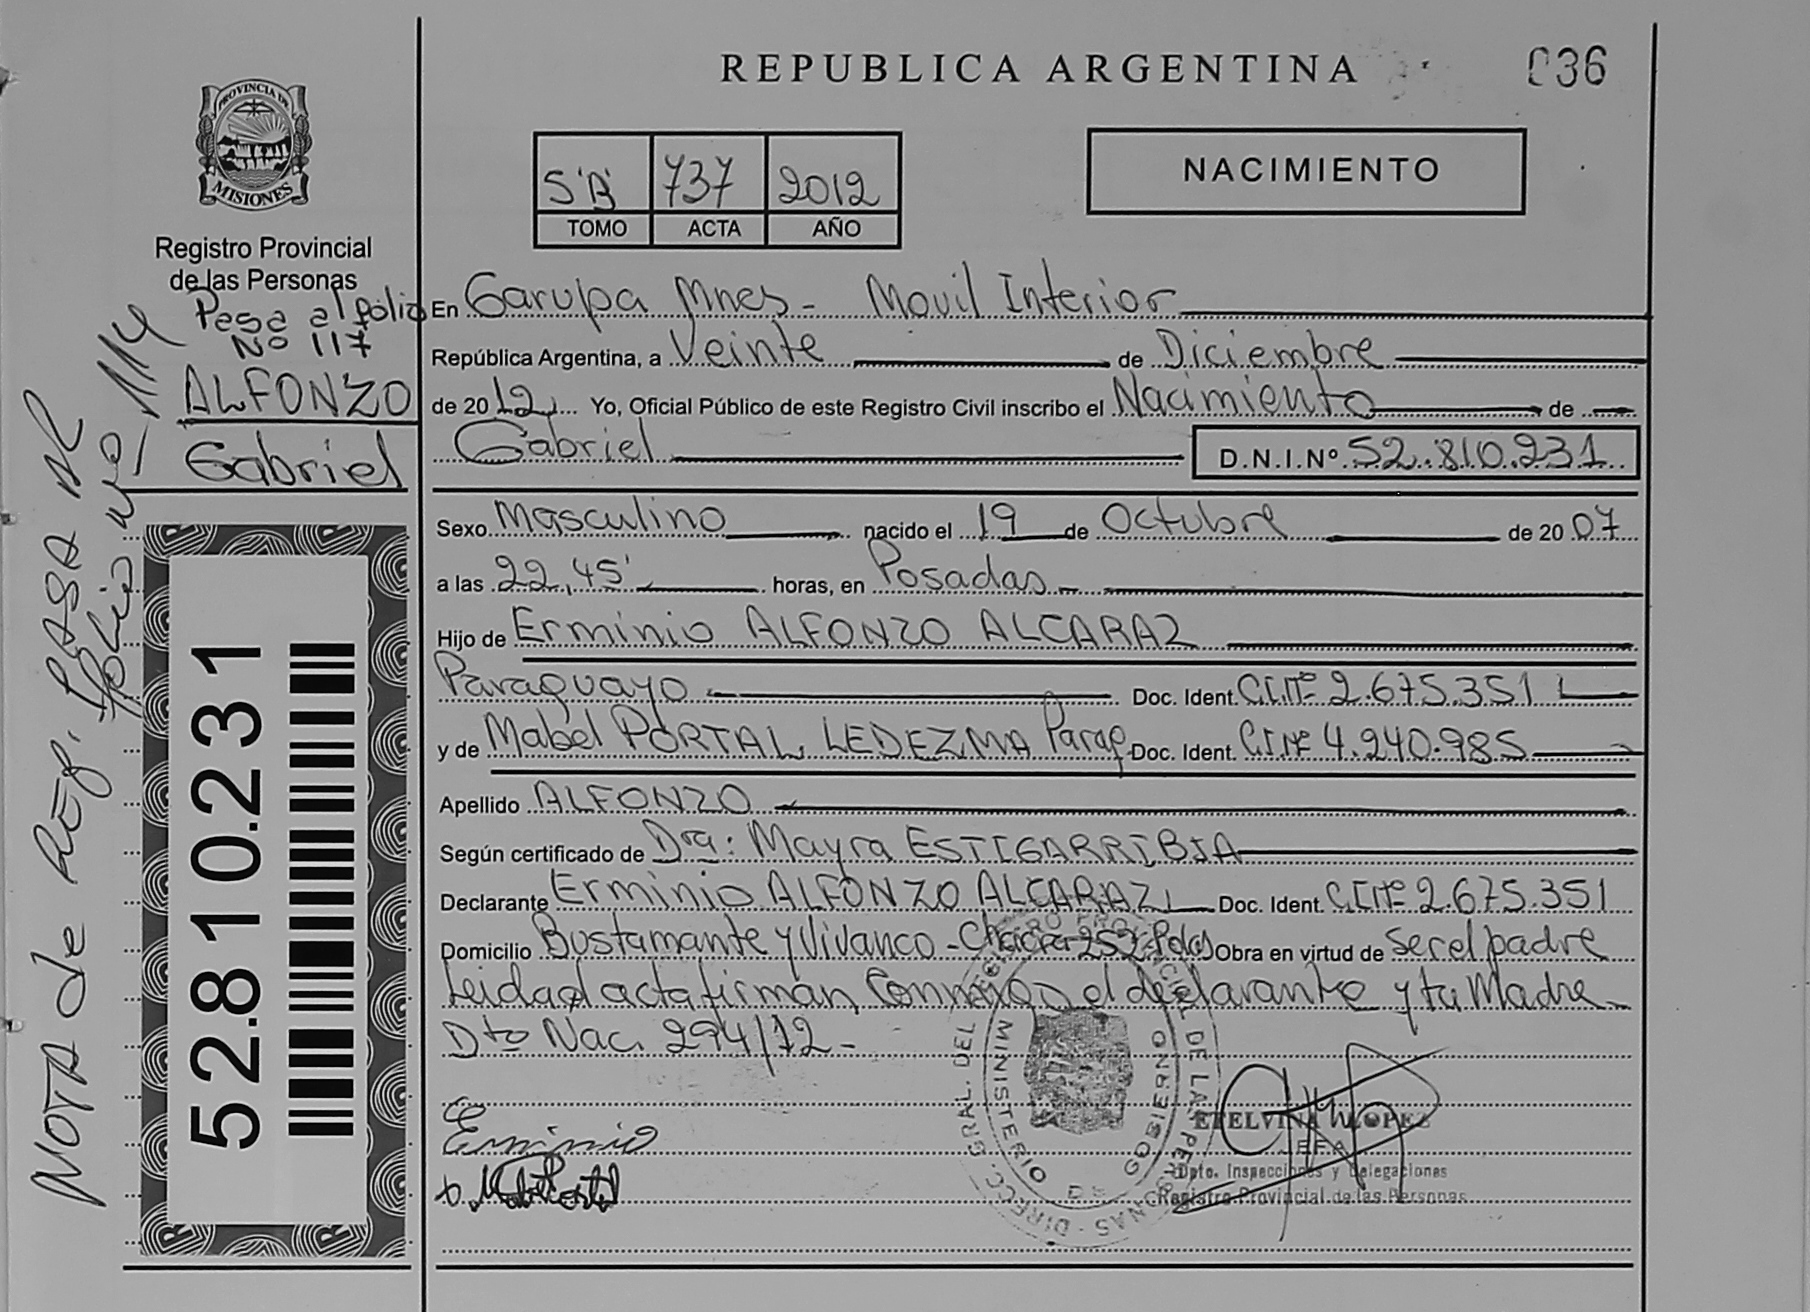 REPUBLICA ARGENTINA
036
PROVINCIA DE
MISIONES
Registro Provincial
de las Personas
S'B' 737 2012
TOMO ACTA AÑO
NACIMIENTO
Pasa al folio
Nº 117
ALFONZO
Gabriel
NOTA de REF. PASA AL
folio Nº 114
52.810.231
En Garupa Mnes - Movil Interior
República Argentina, a Veinte de Diciembre
de 2012, Yo, Oficial Público de este Registro Civil inscribo el Nacimiento de
Gabriel D.N.I.Nº 52.810.231
Sexo Masculino nacido el 19 de Octubre de 2007
a las 22,45' horas, en Posadas
Hijo de Erminio ALFONZO ALCARAZ
Paraguayo Doc. Ident. C.I.Nº 2.675.351
y de Mabel PORTAL LEDEZMA Parag Doc. Ident. C.I.Nº 4.240.985
Apellido ALFONZO
Según certificado de Dra: Mayra ESTIGARRIBIA
Declarante Erminio ALFONZO ALCARAZ Doc. Ident. C.I.Nº 2.675.351
Domicilio Bustamante y Vivanco - Chacra 252 - Pdas Obra en virtud de ser el padre
Leida el acta firman, Conmigo el declarante y la Madre
Dto Nac. 294/72 -
Erminio
DIRECC. GRAL. DEL REGISTRO PROVINCIAL DE LAS PERSONAS
MINISTERIO DE GOBIERNO
ETELVINA LOPEZ
JEFA
Dpto. Inspecciones y Delegaciones
Registro Provincial de las Personas